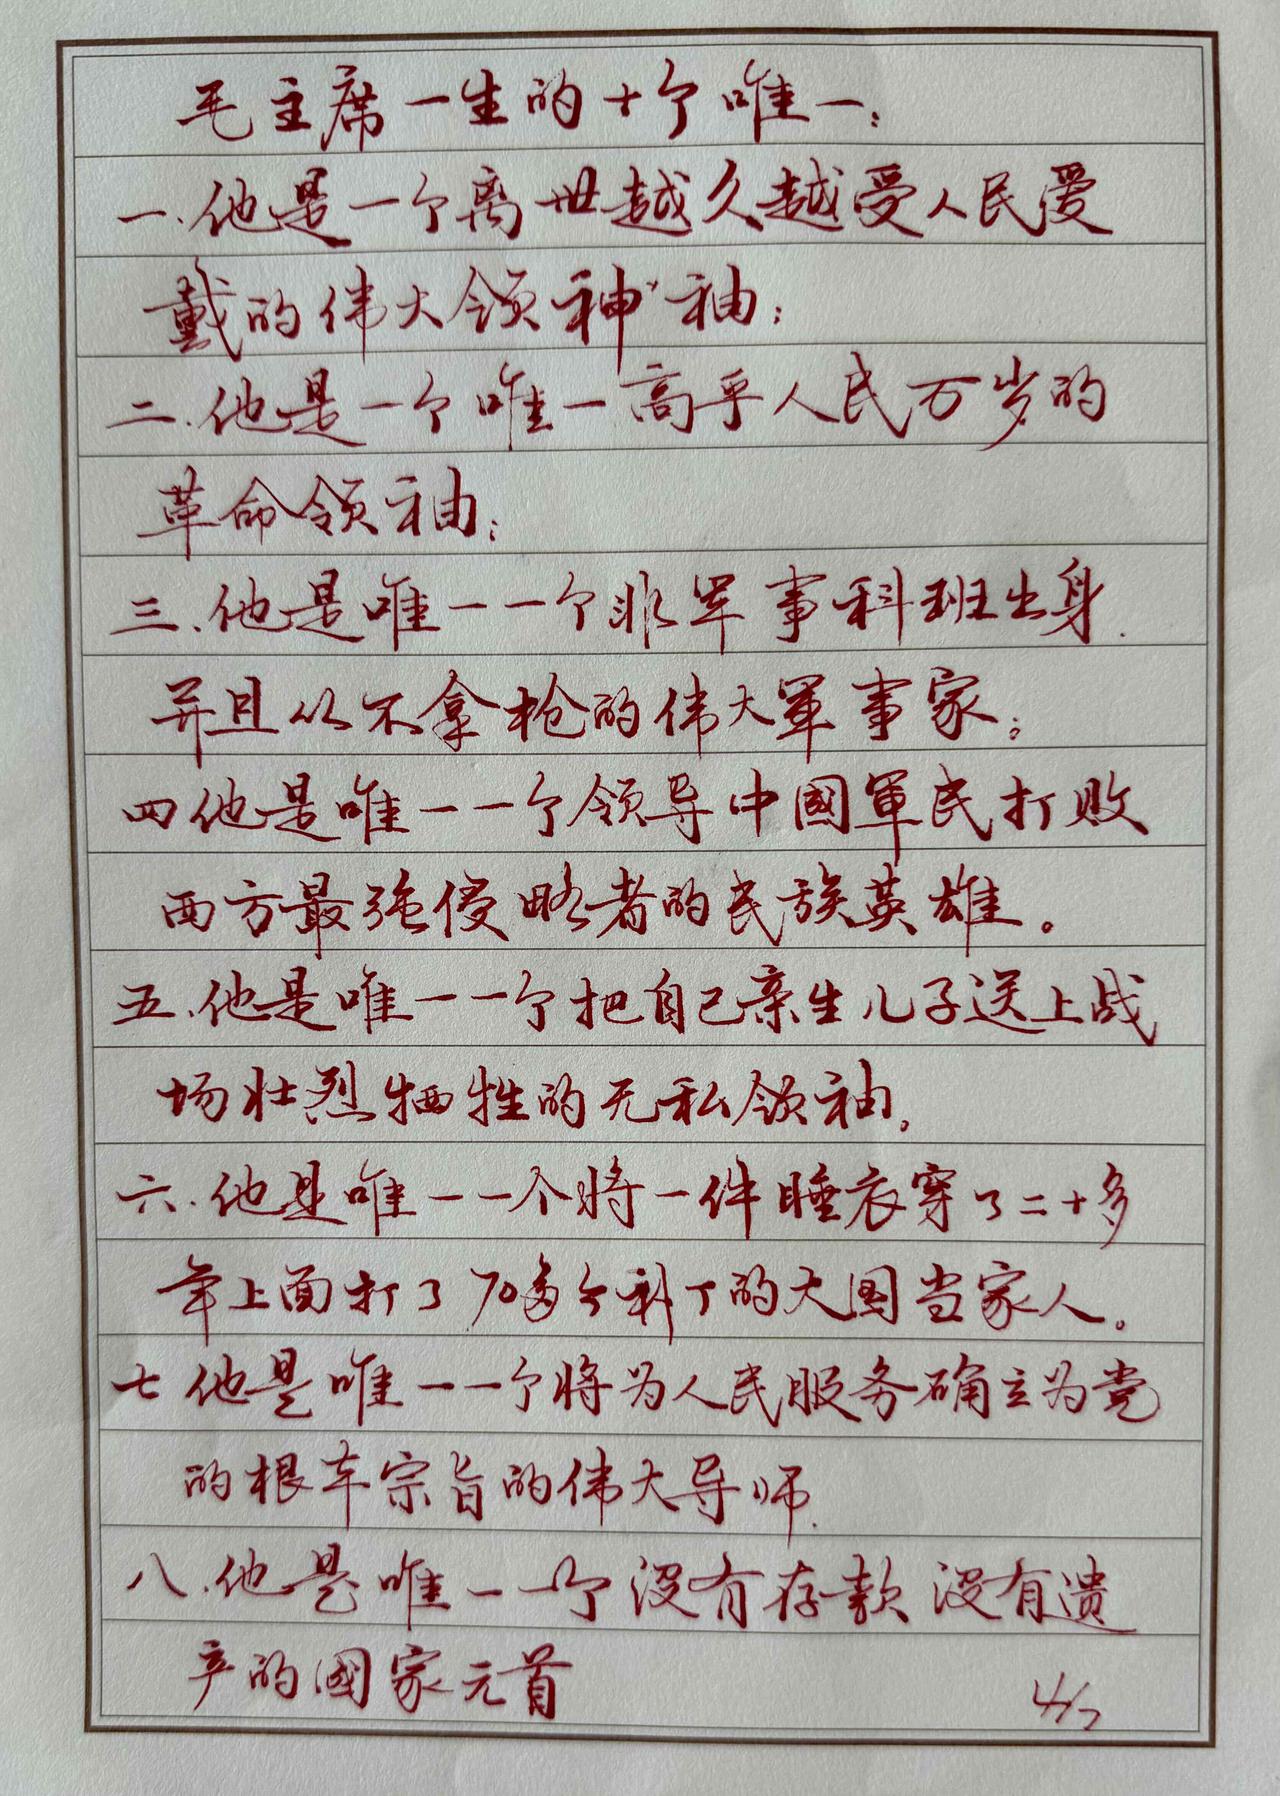 毛主席一生的十个唯一：
一.他是一个离世越久越受人民爱
戴的伟大领神、袖；
二.他是一个唯一高乎人民万岁的
革命领袖；
三.他是唯一一个非军事科班出身.
并且从不拿枪的伟大军事家；
四他是唯一一个领导中國軍民打败
西方最强侵略者的民族英雄。
五.他是唯一一个把自己亲生儿子送上战
场壮烈牺牲的无私领袖。
六.他是唯一一个将一件睡衣穿了二十多
年上面打了70多个补丁的大国当家人。
七他是唯一一个将为人民服务确立为党
的根本宗旨的伟大导师.
八.他是唯一一个没有存款没有遗
产的國家元首
4/7